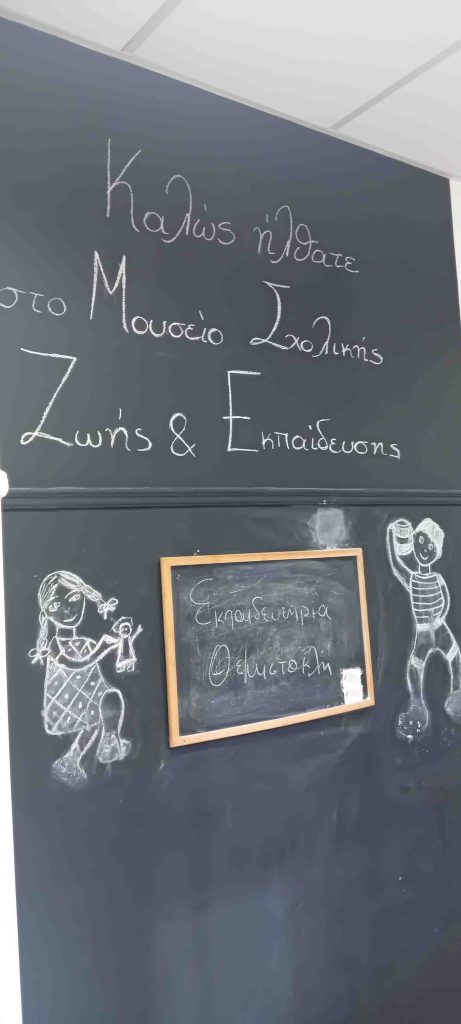 Καλώς ήλθατε
στο Μουσείο Σχολικής
Ζωής & Εκπαίδευσης
Εκπαιδευτήρια
Θεμιστοκλή